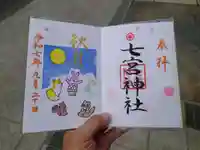 奉拝
七宮神社
秋
令和七年九月二十日